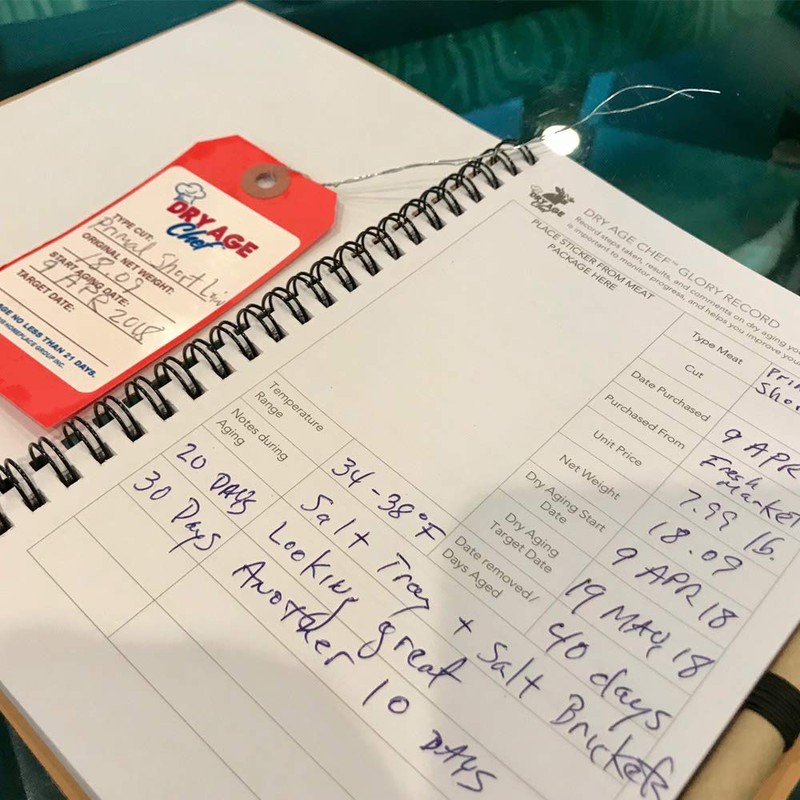 DRY AGE
Chef
TYPE CUT:
Primal Short Lin
ORIGINAL NET WEIGHT:
18.09
START AGING DATE:
9 APR 2018
TARGET DATE:
AGE NO LESS THAN 21 DAYS.
HOMEPLACE GROUP INC.
DRY AGE
Chef
DRY AGE CHEF™ GLORY RECORD
Record steps taken, results, and comments on dry aging you
is important to monitor progress, and helps you improve your
PLACE STICKER FROM MEAT
PACKAGE HERE
Type Meat
Cut Pri
Sho
Date Purchased 9 APR
Purchased From Fresh
Market
Unit Price 7.99 lb.
Net Weight 18.09
Dry Aging Start
Date 9 APR 18
Dry Aging
Target Date 19 MAY 18
Date removed/
Days Aged 40 days
Temperature
Range 34-38°F
Notes during
Aging Salt Tray + Salt Brickets
20 DAYS Looking great
30 Days Another 10 DAYS